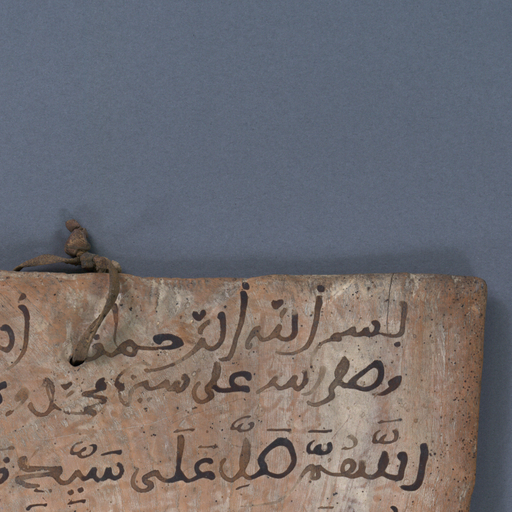 بسم الله الرحمن
وصلى الله على سيدنا محمد و
اللَّهُمَّ صَلِّ عَلَى سَيِّدِ